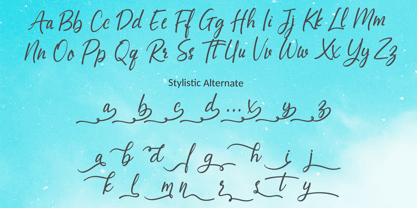 Aa Bb Cc Dd Ee Ff Gg Hh Ii Jj Kk Ll Mm
Nn Oo Pp Qq Rr Ss Tt Uu Vv Ww Xx Yy Zz
Stylistic Alternate
a b c d ... x y z
a b d f g h i j
k l m n r s t y